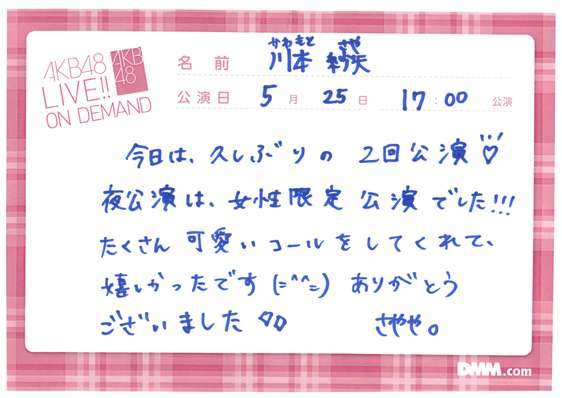 AKB48
LIVE!!
ON DEMAND
AKB
48
かわもと さや
名前 川本 紗矢
公演日 5月 25日 17:00 公演
今日は、久しぶりの 2回公演♡
夜公演は、女性限定 公演でした!!!
たくさん 可愛い コールをしてくれて、
嬉しかったです (=^^=) ありがとう
ございました
さやや。
DMM.com